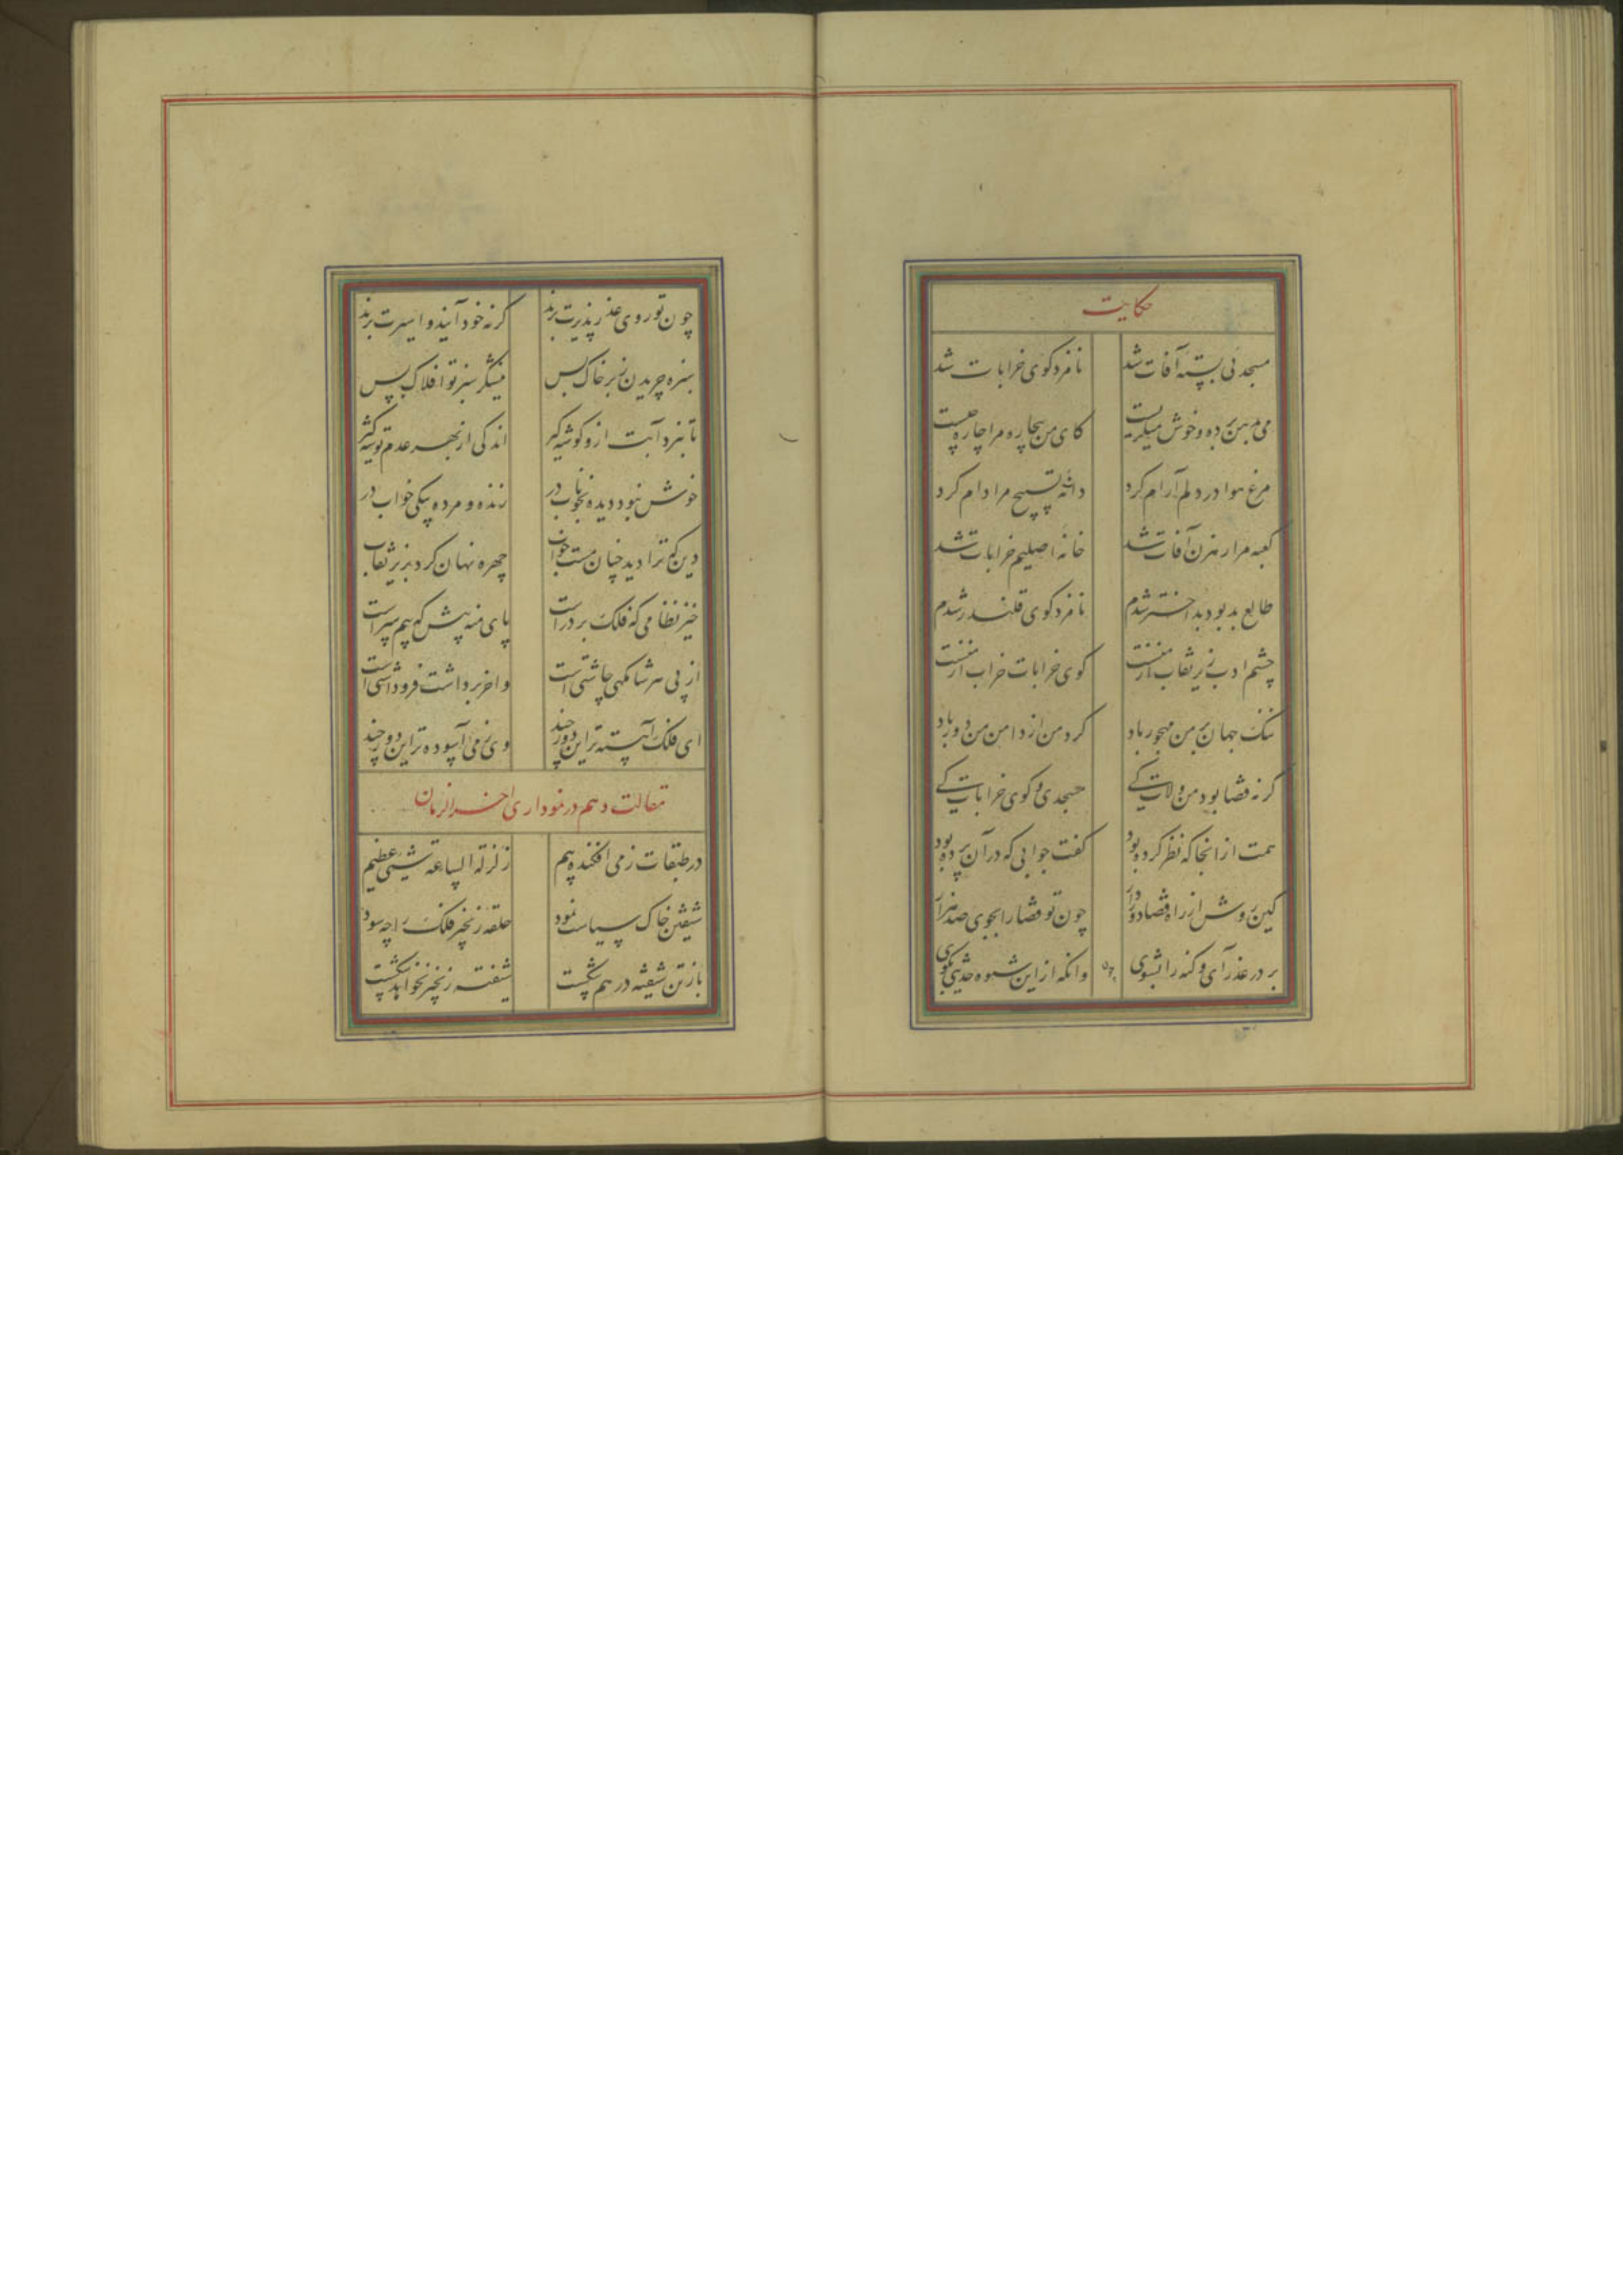 حکایت
مسجدئی بسته آفات شد نامزد کوی خرابات شد
می بدهن برده و خوش میکریست کای من بیچاره مرا چاره چیست
مرغ هوا در دلم آرام کرد دانه تسبیح مرا دام کرد
کعبه مرا رهزن آفات شد خانه اصلیم خرابات شد
طالع بد بود بد اختر شدم نامزد کوی قلندر شدم
چشم ادب زیر نقاب از منست کوی خرابات خراب از منست
تنک جهان بر من مهجور باد کرد من از دامن من دور باد
کرنه قضا بود من ولات کی مسجدی و کوی خرابات کی
همت از انجا که نظر کرده بود کفت جوابی که در آن پرده بود
کین روش از راه قضا دور دار چون تو قضا را بجوی صد هزار
بر در عذر آی و کنه را بشوی وانکه از این شیوه حدیثی بکوی
چون تو روی عذر پذیرت برند کرنه خود آیند و اسیرت برند
سبزه چریدن ز سر خاک بس نیشکر سبز تو افلاک بس
تا نبرد آبت ازو کوشه کیر اندکی از بهر عدم توشه کیر
خوش نبود دیده بخوناب در زنده و مرده بیکی خواب در
دین که ترا دید چنان مست خواب چهره نهان کرد بزیر نقاب
خیز نظامی که فلک بر درست پای منه پیش که بیم سرست
از پی هر شامکهی چاشتی است واخر برداشت فروداشتی است
ای فلک آهسته تر این دور چند وی زمی آسوده تر این دور چند
مقالت دهم در نموداری اخر الزمان
در طبقات زمی افکنده بیم زلزلة الساعة شیئی عظیم
شیفتن خاک سیاست نمود حلقه زنجیر فلک را چه سود
باز تن شیفته درهم شکست شیفته زنجیر نخواهد کسست